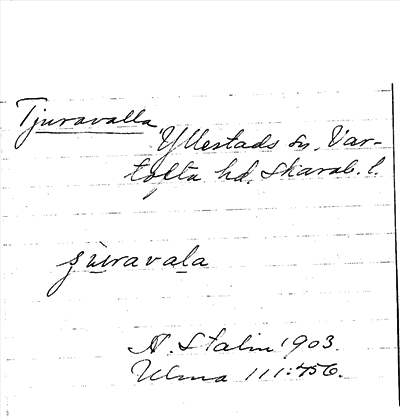 Tjuravalla
Yllestads sn, Var-
tofta hd. Skarab. l.
juravala
N. Stalin 1903.
Ulma 111:456.